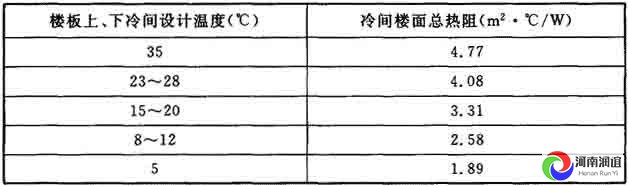 楼板上、下冷间设计温度(℃) 冷间楼面总热阻(m²·℃/W)
35 4.77
23～28 4.08
15～20 3.31
8～12 2.58
5 1.89
河南润谊
Henan Run Yi